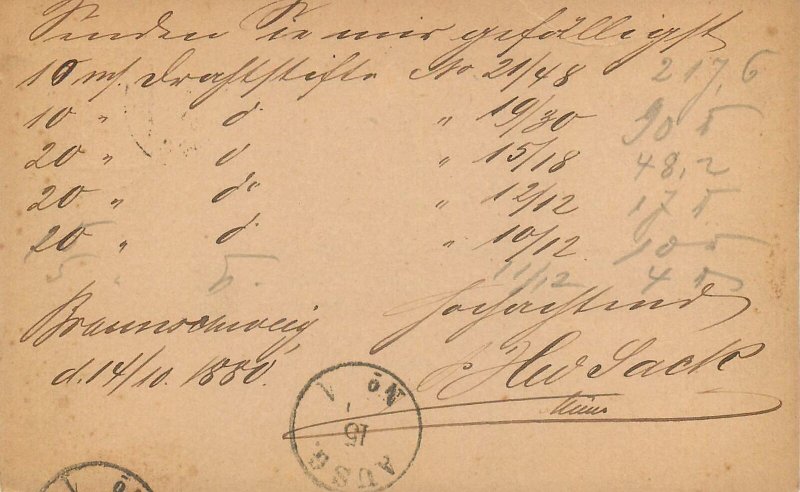 Senden Sie mir gefälligst
10 m/ Drahtstifte No 21/48 217,6
10 " d° " 19/30 90 5
20 " d° " 15/18 48,2
20 " d° " 12/12 17 5
20 " d° " 10/12 10 5
5 " 11/12 4 5
Braunschweig, Hochachtend
d. 14/10. 1880. Sack
No 1
15
AUSG.
No 1